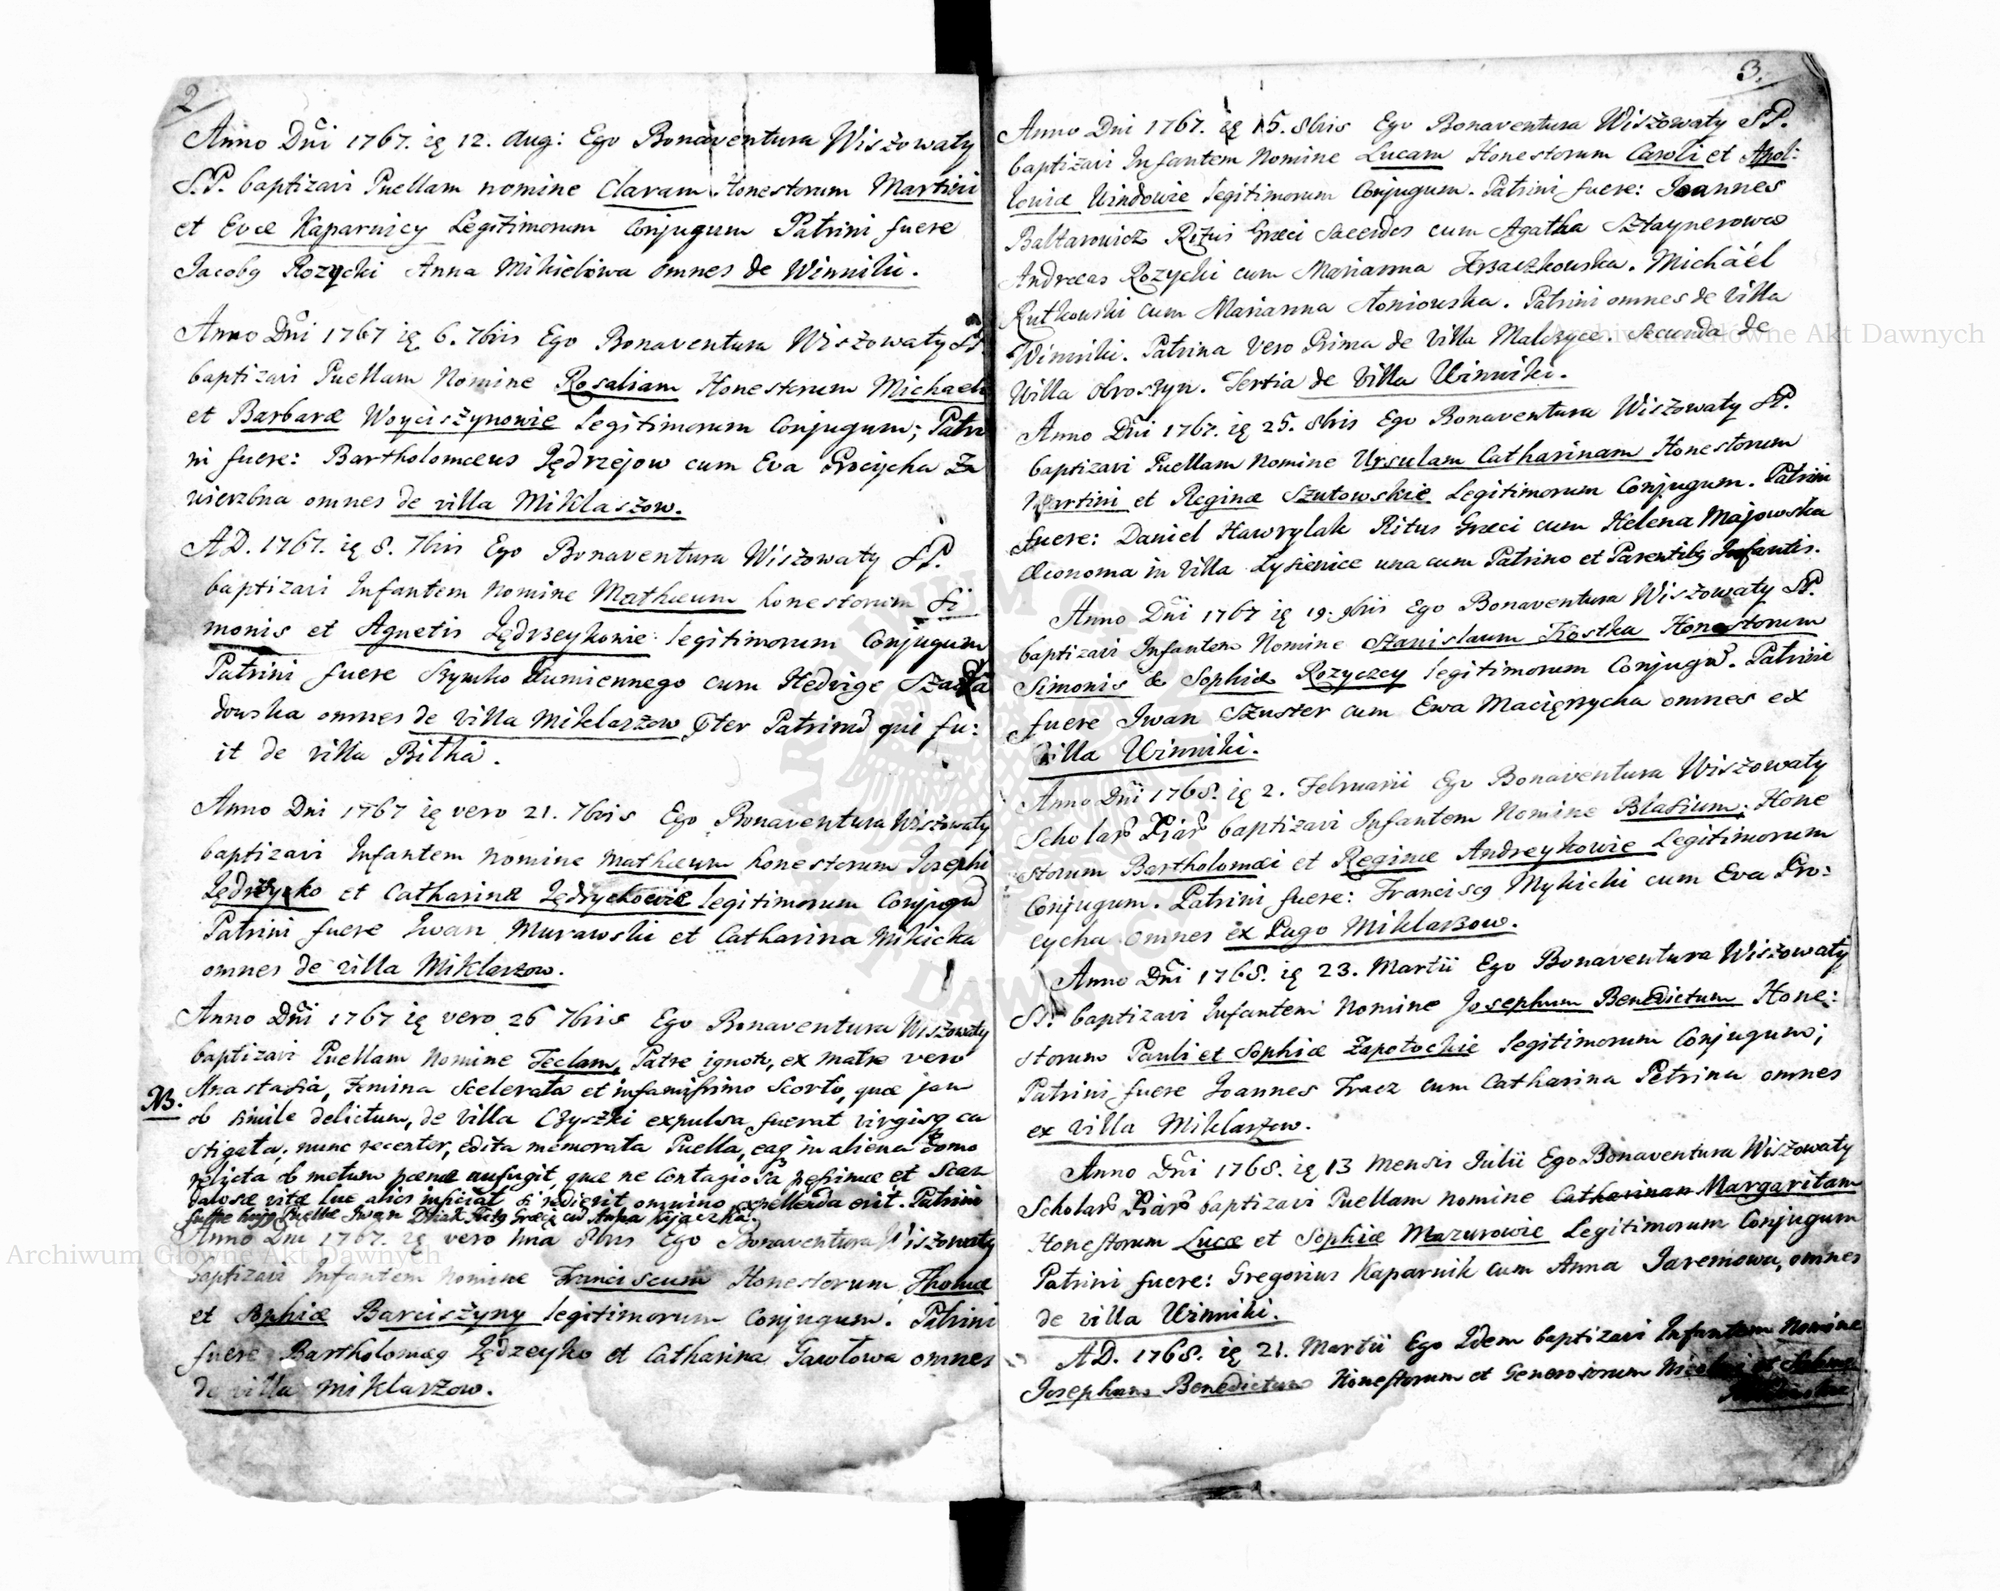 2
Anno Dñi 1767. ię 12. Aug: Ego Bonaventura Wiszowaty
S.P. baptizavi Puellam nomine Claram Honestorum Martini
et Evæ Kaparnicy Legitimorum Conjugum Patrini fuere
Jacobg Rozycki Anna Mikielowa omnes de Winniki.
Anno Dñi 1767 ię 6. 7bris Ego Bonaventura Wiszowaty SP
baptizavi Puellam Nomine Rosaliam Honestorum Michaeli
et Barbaræ Woyciszynowie legitimorum Conjugum; Patri
ni fuere: Bartholomæus Jędrzejow cum Eva Procycha Za
wierzbna omnes de villa Miklaszow.
A.D. 1767. ię 8. 7bris Ego Bonaventura Wiszowaty S.P.
baptizavi Infantem Nomine Mathæum honestorum Si
monis et Agnetis Jędrzeykowie legitimorum Conjugum
Patrini fuere Szymko Dumiennego cum Hedvige
dowska omnes de villa Miklaszow pter Patrinũ qui fu:
it de villa Bilka.
Anno Dni 1767 ię vero 21. 7bris Ego Bonaventura Wiszowaty
baptizavi Infantem Nomine Mathæum honestorum Josephi
Jędrzyko et Catharinæ Jędrzykowie legitimorum Conjugũ
Patrini fuere Iwan Murawski et Catharina Mikicka
omnes de villa Miklaszow.
Anno Dñi 1767 ię vero 26 7bris Ego Bonaventura Wiszowaty
baptizavi Puellam Nomine Teclam, Patre ignoto, ex Matre vero
NB. Anastasia, Femina scelerata et infamissimo Scorto, quæ jam
ob simile delictum, de villa Czyszki expulsa fuerat virgisq ca
stigata, nunc recenter, edita memorata Puella, eaq in aliena domo
relicta ob metum pænæ aufugit, quæ ne contagiosa pessimæ et scan
dalosæ vitæ lue alios inficiat si redierit omnino expellenda erit. Patrini
fuere hujq Puellæ Iwan Dziak Ritg Græci cũ Anna
Anno Dni 1767. ię vero 1ma 8bris Ego Bonaventura Wiszowaty
baptizavi Infantem Nomine Franciscum Honestorum Thomæ
et Sophiæ Barciszyny legitimorum Conjugum. Patrini
fuere Bartholomæg Jędzeyko et Catharina Gawłowa omnes
de villa Miklaszow.
3.
Anno Dni 1767. ię 15. 8bris Ego Bonaventura Wiszowaty S.P.
baptizavi Infantem Nomine Lucam Honestorum Caroli et Apol:
loniæ Windowie legitimorum Conjugum. Patrini fuere: Joannes
Baltarowicz Ritus Græci Sacerdos cum Agatha Sztaynerowa
Andreas Rozycki cum Marianna Michaél
Rutkowski cum Marianna Słoniowska. Patrini omnes de Villa
Winniki. Patrina vero Prima de Villa Malczyce. Secunda de
Villa Obroszyn. Tertia de Villa Winniki.
Anno Dñi 1767. ię 25. 8bris Ego Bonaventura Wiszowaty S.P.
baptizavi Puellam Nomine Ursulam Catharinam Honestorum
Martini et Reginæ Szutowskie Legitimorum Conjugum. Patrini
fuere: Daniel Hawrylak Ritus Græci cum Helena Majowska
Œconoma in Villa Lysienice una cum Patrino et Parentibg Infantis.
Anno Dñi 1767 ię 19. 9bris Ego Bonaventura Wiszowaty S.P.
baptizavi Infantem Nomine Stanislaum Kostka Honestorum
Simonis & Sophiæ Rozyczcy legitimorum Conjugũ. Patrini
fuere Iwan Szuster cum Ewa Macięnycha omnes ex
Villa Winniki.
Anno Dñi 1768. ię 2. Februarii Ego Bonaventura Wiszowaty
Scholarũ Piarũ baptizavi Infantem Nomine Blasium; Hone
storum Bartholomæi et Reginæ Andreykowie Legitimorum
Conjugum. Patrini fuere: Franciscg Mykicki cum Eva Pro:
cycha omnes ex Pago Miklaszow.
Anno Dñi 1768. ię 23. Martii Ego Bonaventura Wiszowaty
S.P. baptizavi Infantem Nomine Josephum Benedictum Hone:
storum Pauli et Sophiæ Zapotockie legitimorum Conjugum;
Patrini fuere Joannes Tracz cum Catharina Petrina omnes
ex villa Miklaszow.
Anno Dñi 1768. ię 13 Mensis Julii Ego Bonaventura Wiszowaty
Scholarũ Piarũ baptizavi Puellam nomine Catharinam Margaritam
Honestorum Lucæ et Sophiæ Mazurowie Legitimorum Conjugum
Patrini fuere: Gregorius Kaparnik cum Anna Jaremowa, omnes
de villa Winniki.
A.D. 1768. ię 21. Martii Ego Idem baptizavi Infantem Nomine
Josephum Benedictum Honestorum et Generosorum Nicolai et
Archiwum Główne Akt Dawnych
Archiwum Główne Akt Dawnych
ARCHIWUM GŁÓWNE AKT DAWNYCH